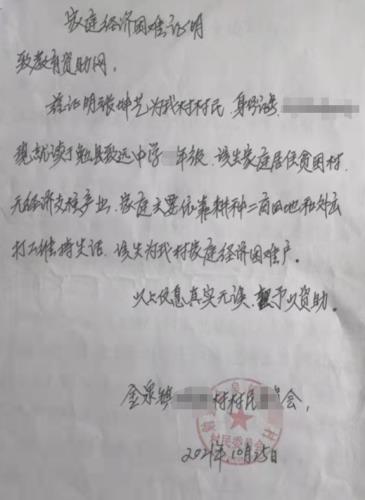 家庭经济困难证明
致教育资助网。
兹证明张坤芝为我村村民 身份证号
现就读于勉县致远中学 年级 该生家庭居住贫困村
无经济支柱产业、家庭主要依靠耕种二亩田地和外出
打工维持生活、该生为我村家庭经济困难户。
以上信息真实无误、予以资助。
金泉镇 村村民 会,
村民委员会
2021年10月25日